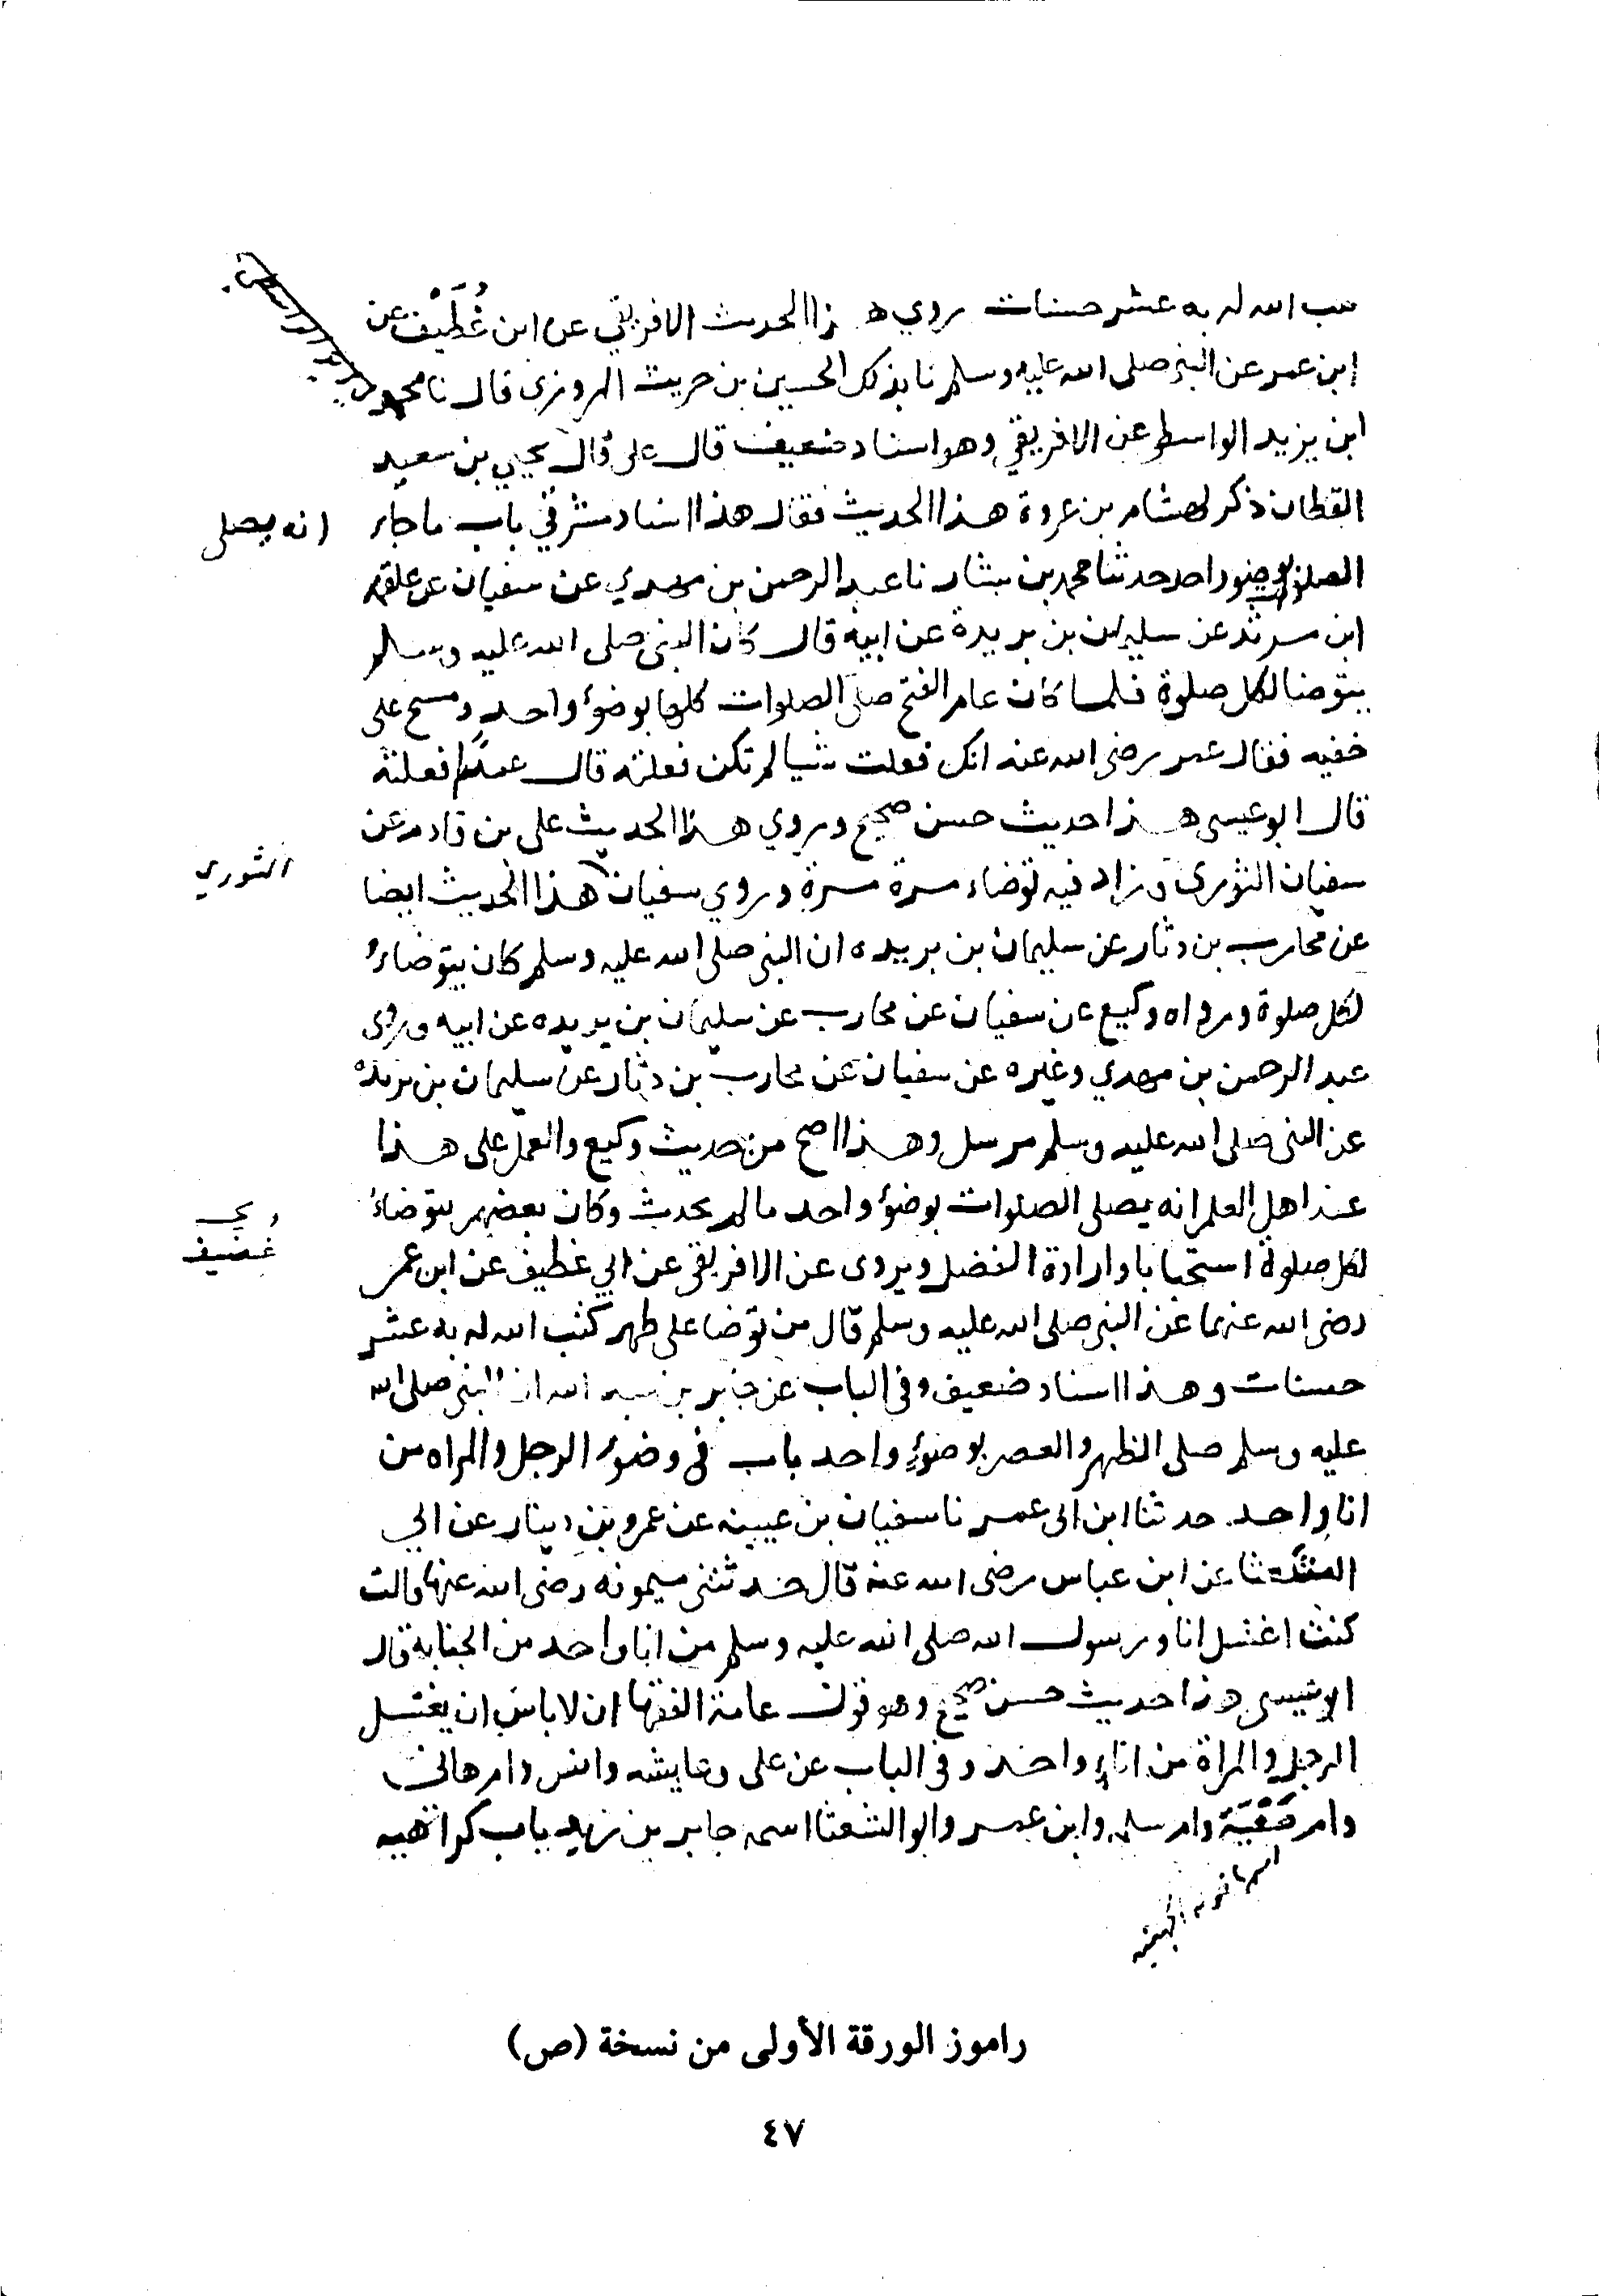 كتب الله له به عشر حسنات روي هذا الحديث الافريقي عن ابن غُطَيْف عن
ابن عمر عن النبي صلى الله عليه وسلم نا بذلك الحسين بن حريث المروزى قال نا محمد
ابن يزيد الواسطي عن الافريقي وهو اسناد ضعيف قال علي قال يحيي بن سعيد
القطان ذكر لهشام بن عروة هذا الحديث فقال هذا اسناد مشرقي باب ما جاء انه يصلى
الصلوات بوضوء واحد حدثنا محمد بن بشار نا عبد الرحمن بن مهدي عن سفيان عن علقمه
ابن مرثد عن سليمان بن بريدة عن ابيه قال كان النبي صلى الله عليه وسلم
يتوضا لكل صلوة فلما كان عام الفتح صلى الصلوات كلها بوضوء واحد ومسح على
خفيه فقال عمر رضى الله عنه انك فعلت شيا لم تكن فعلته قال عمدًا فعلته
قال ابو عيسى هذا حديث حسن صحيح وروي هذا الحديث على بن قادم عن
سفيان الثورى وزاد فيه توضاء مرة مرة وروي سفيان هذا الحديث ايضا
الثوري
عن محارب بن دثار عن سليمان بن بريده ان النبي صلى الله عليه وسلم كان يتوضاء
لكل صلوة ورواه وكيع عن سفيان عن محارب عن سليمان بن بريده عن ابيه وروى
عبد الرحمن بن مهدي وغيره عن سفيان عن محارب بن دثار عن سليمان بن بريده
عن النبي صلى الله عليه وسلم مرسل وهذا اصح من حديث وكيع والعمل على هذا
عند اهل العلم انه يصلى الصلوات بوضوء واحد ما لم يحدث وكان بعضهم يتوضاء
لكل صلوة استحبابا وارادة الفضل ويروى عن الافريقي عن ابي غطيف عن ابن عمر
رضى الله عنهما عن النبي صلى الله عليه وسلم قال من توضا على طهر كتب الله له به عشر
حسنات وهذا اسناد ضعيف وفي الباب عن جابر بن عبد الله ان النبي صلى الله
عليه وسلم صلى الظهر والعصر بوضوء واحد باب في وضوء الرجل والمراه من
اناء واحد حدثنا ابن ابى عمر نا سفيان بن عيينه عن عمرو بن دينار عن ابي
الشعثا عن ابن عباس رضى الله عنه قال حدثتنى ميمونه رضى الله عنها قالت
كنت اغتسل انا ورسول الله صلى الله عليه وسلم من انا واحد من الجنابة قال
ابو عيسى هذا حديث حسن صحيح وهو قول عامة الفقها ان لا باس ان يغتسل
الرجل والمراة من اناء واحد وفي الباب عن على وعايشه وانس وام هانى
وام صُبَيَّة وام سلمه وابن عمر وابو الشعثا اسمه جابر بن زيد باب كراهيه
راموز الورقة الأولى من نسخة (ص)
٤٧